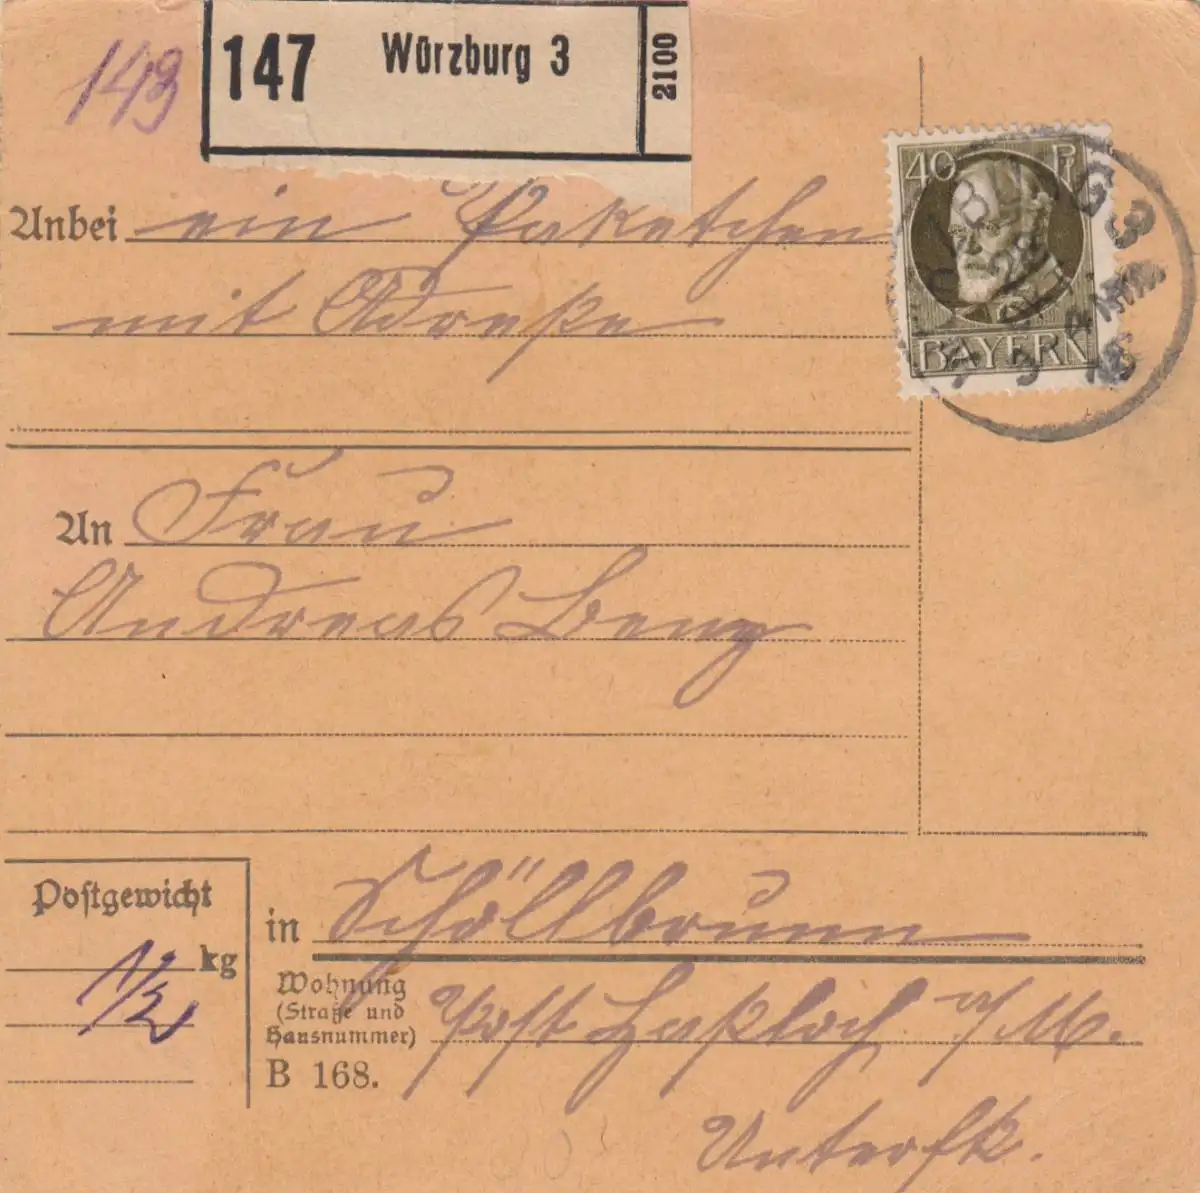 143
147 Würzburg 3 2100
40 Pf
BAYERN
Anbei ein Paketchen
mit Adreße
An Frau
Andreas Benz
Postgewicht
1/2 kg
in Schöllbrunn
Wohnung
(Straße und
Hausnummer)
Post Haßloch a/M.
B 168.
Unterfk.